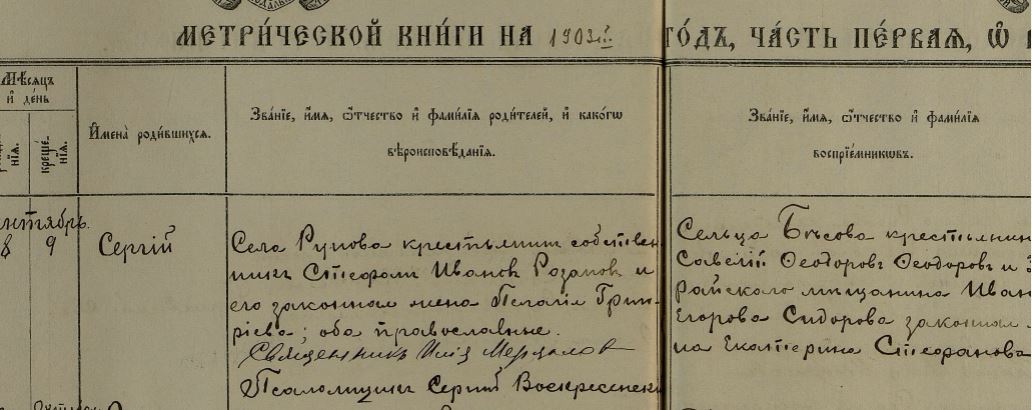 МЕТРИ́ЧЕСКОЙ КНИ́ГИ НА 1903й ГО́ДЪ, ЧА́СТЬ ПЕ́РВАѦ, Ѽ
Мѣсѧцъ
и҆ де́нь
нїѧ.
креще́нїѧ.
И҆мена̀ роди́вшихсѧ.
Зва́нїе, и҆́мѧ, ѻ҆́тчество и҆ фами́лїѧ роди́телей, и҆ како́гѡ
вѣроисповѣ́данїѧ.
Зва́нїе, и҆́мѧ, ѻ҆́тчество и҆ фами́лїѧ
воспрїе́мникѡвъ.
ентябрь.
8
9
Сергій
Села крестьянинъ собствен
никъ Стефанъ Ивановъ Розановъ и
его законная жена Пелагія Григо
ріева; оба православные.
Священникъ
Псаломщикъ Сергій Воскресенск
Сельца Бѣсова крестьянин
Савелій Ѳеодоровъ Ѳеодоровъ и З
райскаго мѣщанина Иван
Егорова Сидорова законная
на Екатерина Стефанова